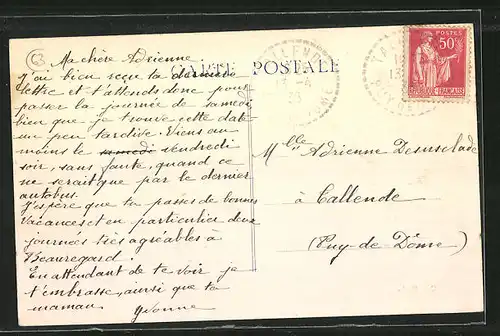 Ma chère Adrienne
J'ai bien reçu ta dernière
lettre et t'attends donc pour
passer la journée de samedi
bien que je trouve cette date
un peu tardive. Viens au
moins le samedi vendredi
soir, sans faute, quand ce
ne serait que par le dernier
autobus.
J'espère que tu passes de bonnes
vacances et en particulier deux
journées très agréables à
Beauregard.
En attendant de te voir je
t'embrasse, ainsi que ta
maman
Yvonne
CARTE POSTALE
POSTES
50c
RÉPUBLIQUE FRANÇAISE
Mlle Adrienne
à Tallende
(Puy-de-Dôme)